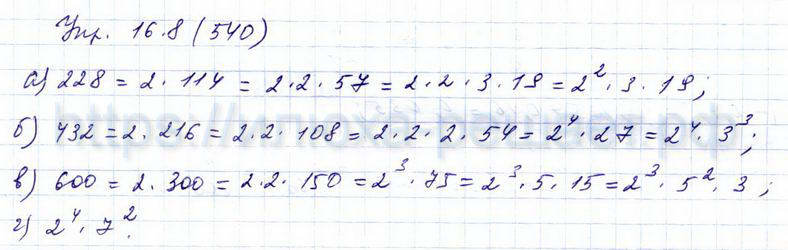 Упр. 16.8 (540)
а) 228 = 2 · 114 = 2 · 2 · 57 = 2 · 2 · 3 · 19 = 2² · 3 · 19;
б) 432 = 2 · 216 = 2 · 2 · 108 = 2 · 2 · 2 · 54 = 2⁴ · 27 = 2⁴ · 3³;
в) 600 = 2 · 300 = 2 · 2 · 150 = 2³ · 75 = 2³ · 5 · 15 = 2³ · 5² · 3;
г) 2⁴ · 7².